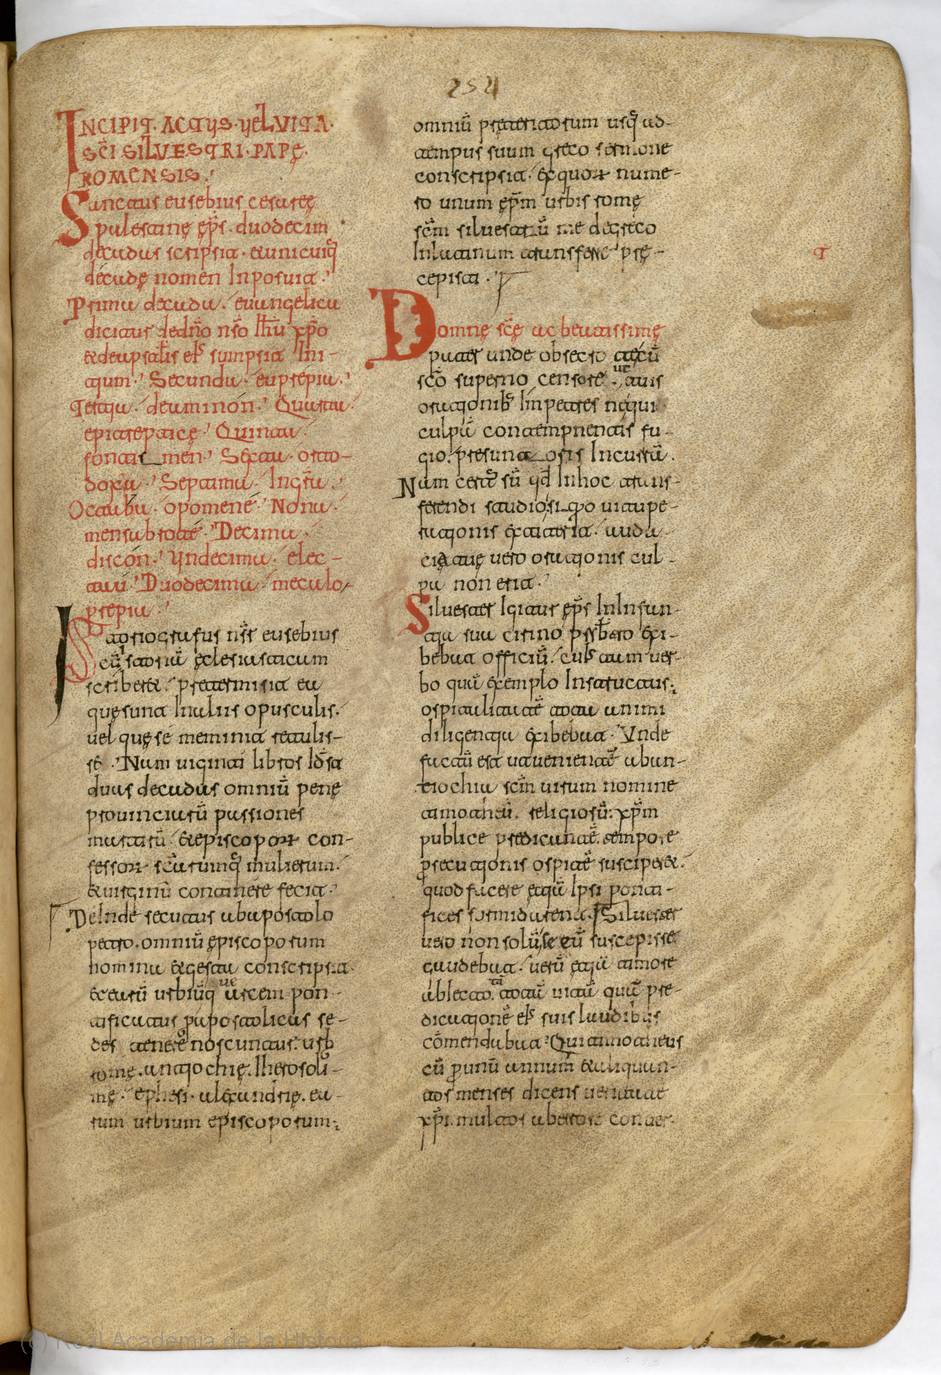 254
INCIPIT · ACTUS · VEL VITA ·
SCI SILVESTRI · PAPE
ROMENSIS ·
Sanctus eusebius cesaree
palestine eps · duodecim
decadas scripsit · et unicuiq
decade nomen Inposuit ·
Prima decada · euangelica
dicitur de dno nso Ihu xpo
et de uptalis eius sumpsit Ini-
tium · Secunda · euprepia ·
Tertia · deuminon · Quarta ·
epitrepatice · Quinta
· men · Sexta · orto-
doxa · Septima ·
Octaba · opomene · Nona ·
mensubrotate · Decima ·
discon · Undecima · elec-
taui · Duodecima · meculo
prepia ·
Istoriografus nsr eusebius
cu storiu eclesiasticum
scriberet · pretermisit ea
que sunt In aliis opusculis ·
uel que se meminit retulis-
se · Nam uiginti libros Idsta
duas decadas omniu pene
prouinciaru passiones
martiru et episcopor con-
fessor scarumq mulierum ·
et uirginu continere fecit ·
DeInde secutus ab apostolo
petro · omniu episcoporum
nomina et gesta conscripsit ·
et earu urbiuq ut arcem pon-
tificatus apostolicas se-
des tenere noscuntur · urb
rome · antiochie · Iherosoli-
me · ephesi · alexandrie · ea-
rum urbium episcoporum ·
omniu preteritorum usq ad
tempus suum greco sermone
conscripsit · ex quor nume-
ro unum epm urbis rome
scm siluestru me de greco
In latinum transferre pre-
cepisti ·
T
Domne sce ac beatissime
pater unde obsecro
sco superno censore · ut tuis
orationib Impetres ne qui
culpa contempnentis fu-
gio · Incurra ·
Nam certe su qd In hoc trans-
ferendi studio si quo uitupe-
rationis extiterit · auda-
citatae uero orationis cul-
pa non erit ·
Siluester Igitur eps In Infan-
tia sua cirino psbtero exi-
bebat officiu · cuius tum uer-
bo qua exemplo Instructus
ospitalitate tota animi
diligentia exibebat · Unde
factu est ut uenientem ab an-
tiochia scm uirum nomine
timotheu · religiosu · xpm
publice predicante · tempore
persecutionis ospite susciperet ·
quod facere etia Ipsi ponti-
fices formidarent · Siluester
uero non solu se eu suscepisse
gaudebat · ueru etia timore
ablecto · tota uita qua pre-
dicatione eius suis laudibus
comendabat · Qui timotheus
cu p unu annum et aliquan-
tos menses dicens ueritate
xpi · multos ubertore conuer-